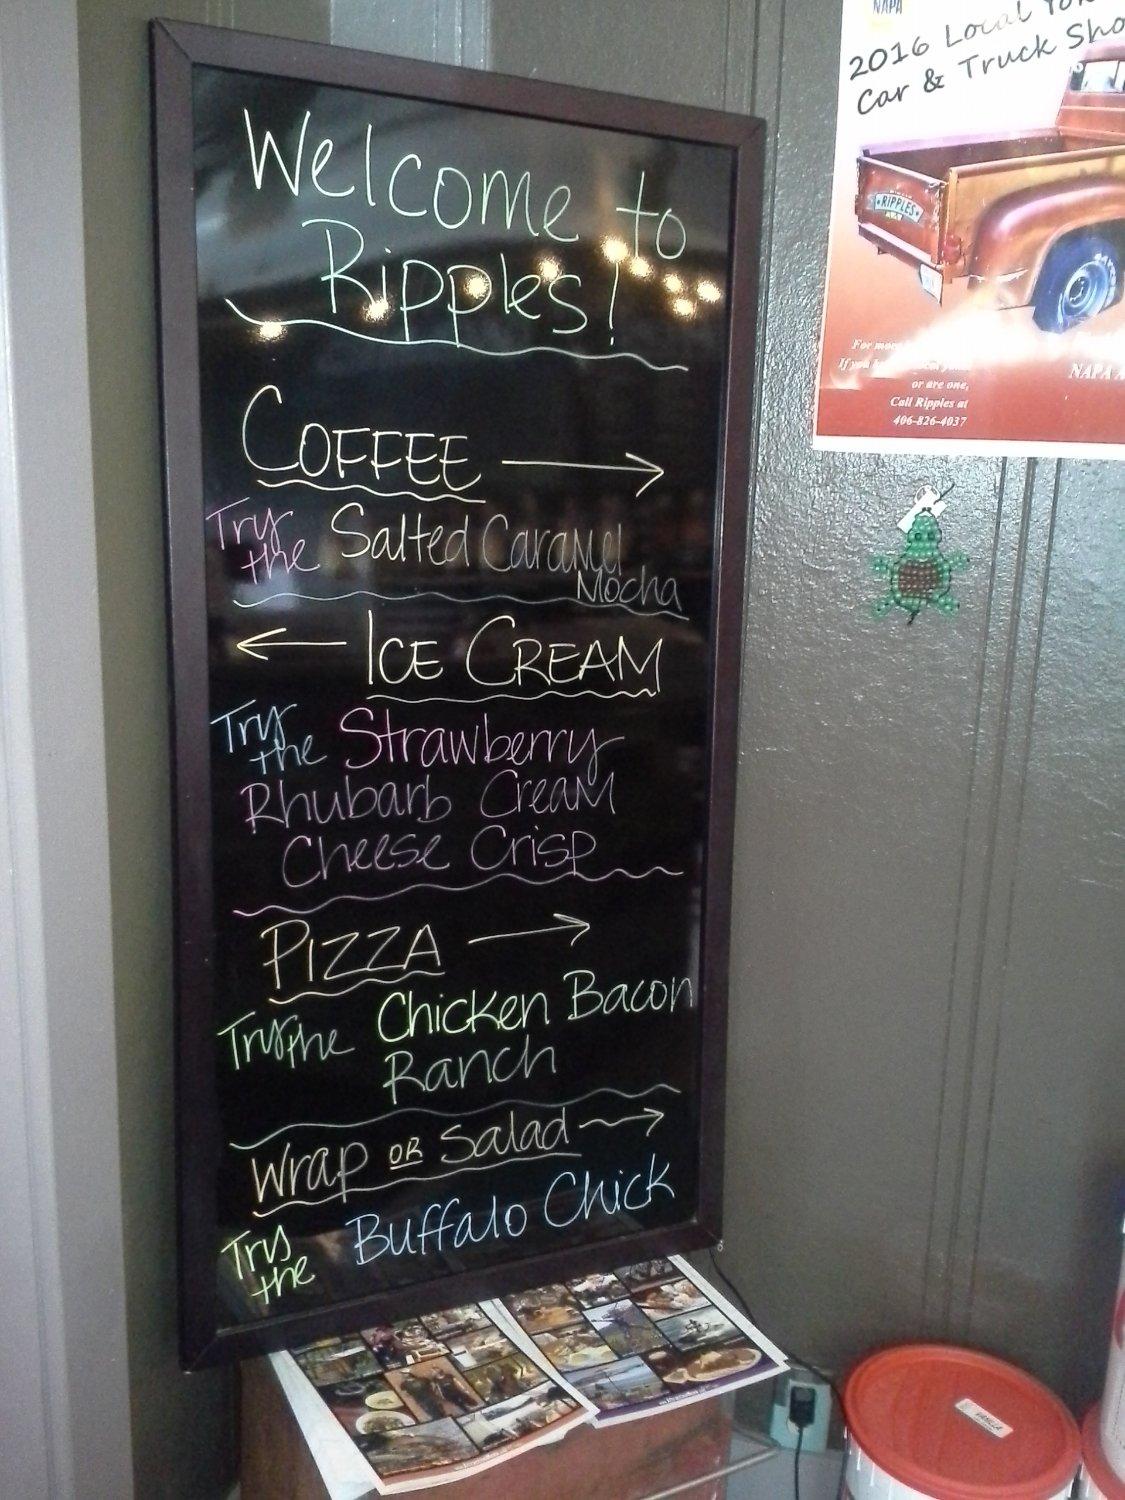 Welcome to
Ripples!
COFFEE
Try the Salted Caramel
Mocha
ICE CREAM
Try the Strawberry
Rhubarb Cream
Cheese Crisp
PIZZA
Try the Chicken Bacon
Ranch
Wrap OR Salad
Try the Buffalo Chick
NAPA
2016 Local
Car & Truck Sho
RIPPLES
For more
If you
or are one,
Call Ripples at
406-826-4037
NAPA A
VANILLA